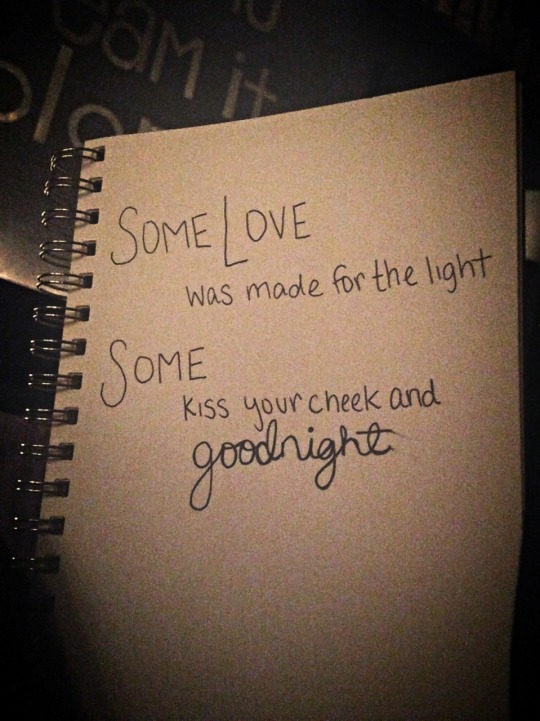 eam it
SOME LOVE
was made for the light
SOME
kiss your cheek and
goodnight